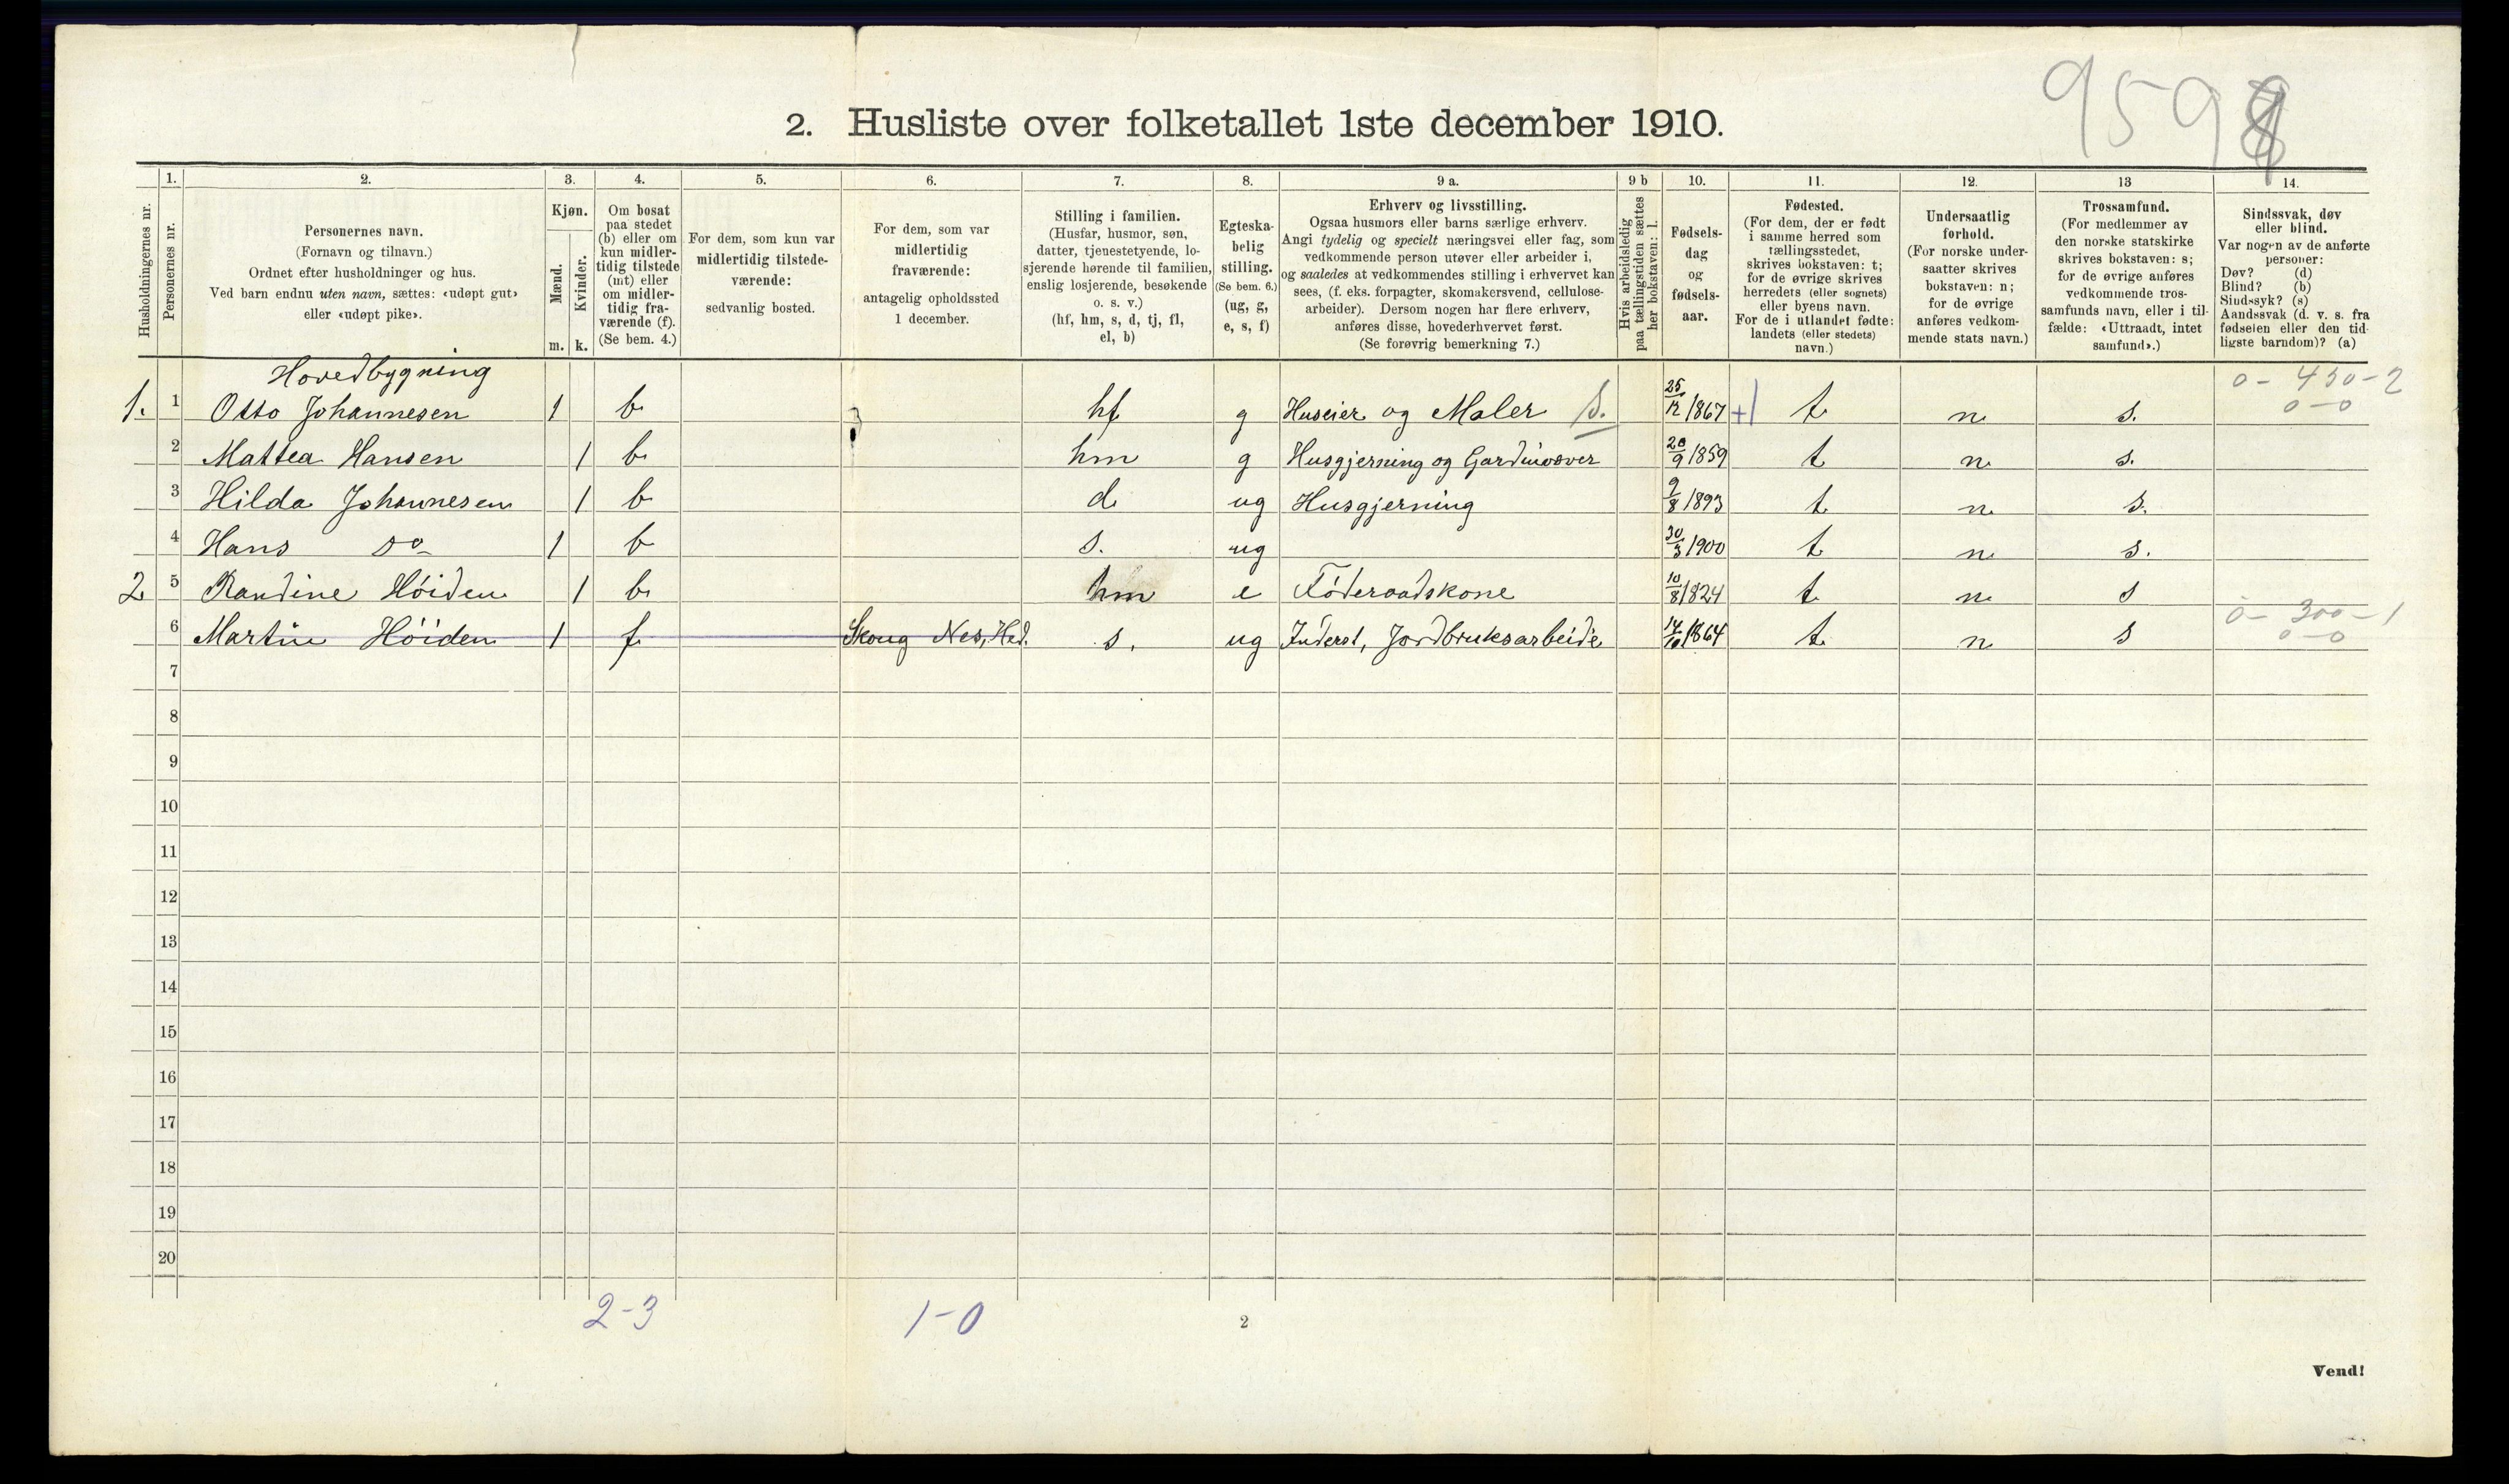 9598
2. Husliste over folketallet 1ste december 1910.
1. 2. 3. 4. 5. 6. 7. 8. 9 a. 9 b 10. 11. 12. 13 14.
Husholdningernes nr.
Personernes nr.
Personernes navn.
(Fornavn og tilnavn.)
Ordnet efter husholdninger og hus.
Ved barn endnu uten navn, sættes: «udøpt gut»
eller «udøpt pike».
Kjøn.
Mænd.
Kvinder.
m. k.
Om bosat
paa stedet
(b) eller om
kun midler-
tidig tilstede
(mt) eller
om midler-
tidig fra-
værende (f).
(Se bem. 4.)
For dem, som kun var
midlertidig tilstede-
værende:
sedvanlig bosted.
For dem, som var
midlertidig
fraværende:
antagelig opholdssted
1 december.
Stilling i familien.
(Husfar, husmor, søn,
datter, tjenestetyende, lo-
sjerende hørende til familien,
enslig losjerende, besøkende
o. s. v.)
(hf, hm, s, d, tj, fl,
el, b)
Egteska-
belig
stilling.
(Se bem. 6.)
(ug, g,
e, s, f)
Erhverv og livsstilling.
Ogsaa husmors eller barns særlige erhverv.
Angi tydelig og specielt næringsvei eller fag, som
vedkommende person utøver eller arbeider i,
og saaledes at vedkommendes stilling i erhvervet kan
sees, (f. eks. forpagter, skomakersvend, cellulose-
arbeider). Dersom nogen har flere erhverv,
anføres disse, hovederhvervet først.
(Se forøvrig bemerkning 7.)
Hvis arbeidsledig
paa tællingstiden sættes
her bokstaven: l.
Fødsels-
dag
og
fødsels-
aar.
Fødested.
(For dem, der er født
i samme herred som
tællingsstedet,
skrives bokstaven: t;
for de øvrige skrives
herredets (eller sognets)
eller byens navn.
For de i utlandet fødte:
landets (eller stedets)
navn.)
Undersaatlig
forhold.
(For norske under-
saatter skrives
bokstaven: n;
for de øvrige
anføres vedkom-
mende stats navn.)
Trossamfund.
(For medlemmer av
den norske statskirke
skrives bokstaven: s;
for de øvrige anføres
vedkommende tros-
samfunds navn, eller i til-
fælde: «Uttraadt, intet
samfund».)
Sindssvak, døv
eller blind.
Var nogen av de anførte
personer:
Døv? (d)
Blind? (b)
Sindssyk? (s)
Aandssvak (d. v. s. fra
fødselen eller den tid-
ligste barndom)? (a)
Hovedbygning 0 - 450 - 2
1. 1 Otto Johannesen 1 b hf g Huseier og Maler S. 25/12 1867 t n s. 0 - 0
2 Mattea Hansen 1 b hm g Husgjerning og Gardinvæver 20/9 1859 t n s.
3 Hilda Johannesen 1 b d ug Husgjerning 9/8 1893 t n s.
4 Hans do 1 b s. ug 30/3 1900 t n s.
2 5 Randine Höiden 1 b hm e Föderaadskone 10/8 1824 t n s
0 - 300 - 1
6 Martin Höiden 1 f Skoug Nes, Hed. s. ug Inderst, Jordbruksarbeide 14/10 1864 t n s 0 - 0
7
8
9
10
11
12
13
14
15
16
17
18
19
20
2-3 1-0 2
Vend!